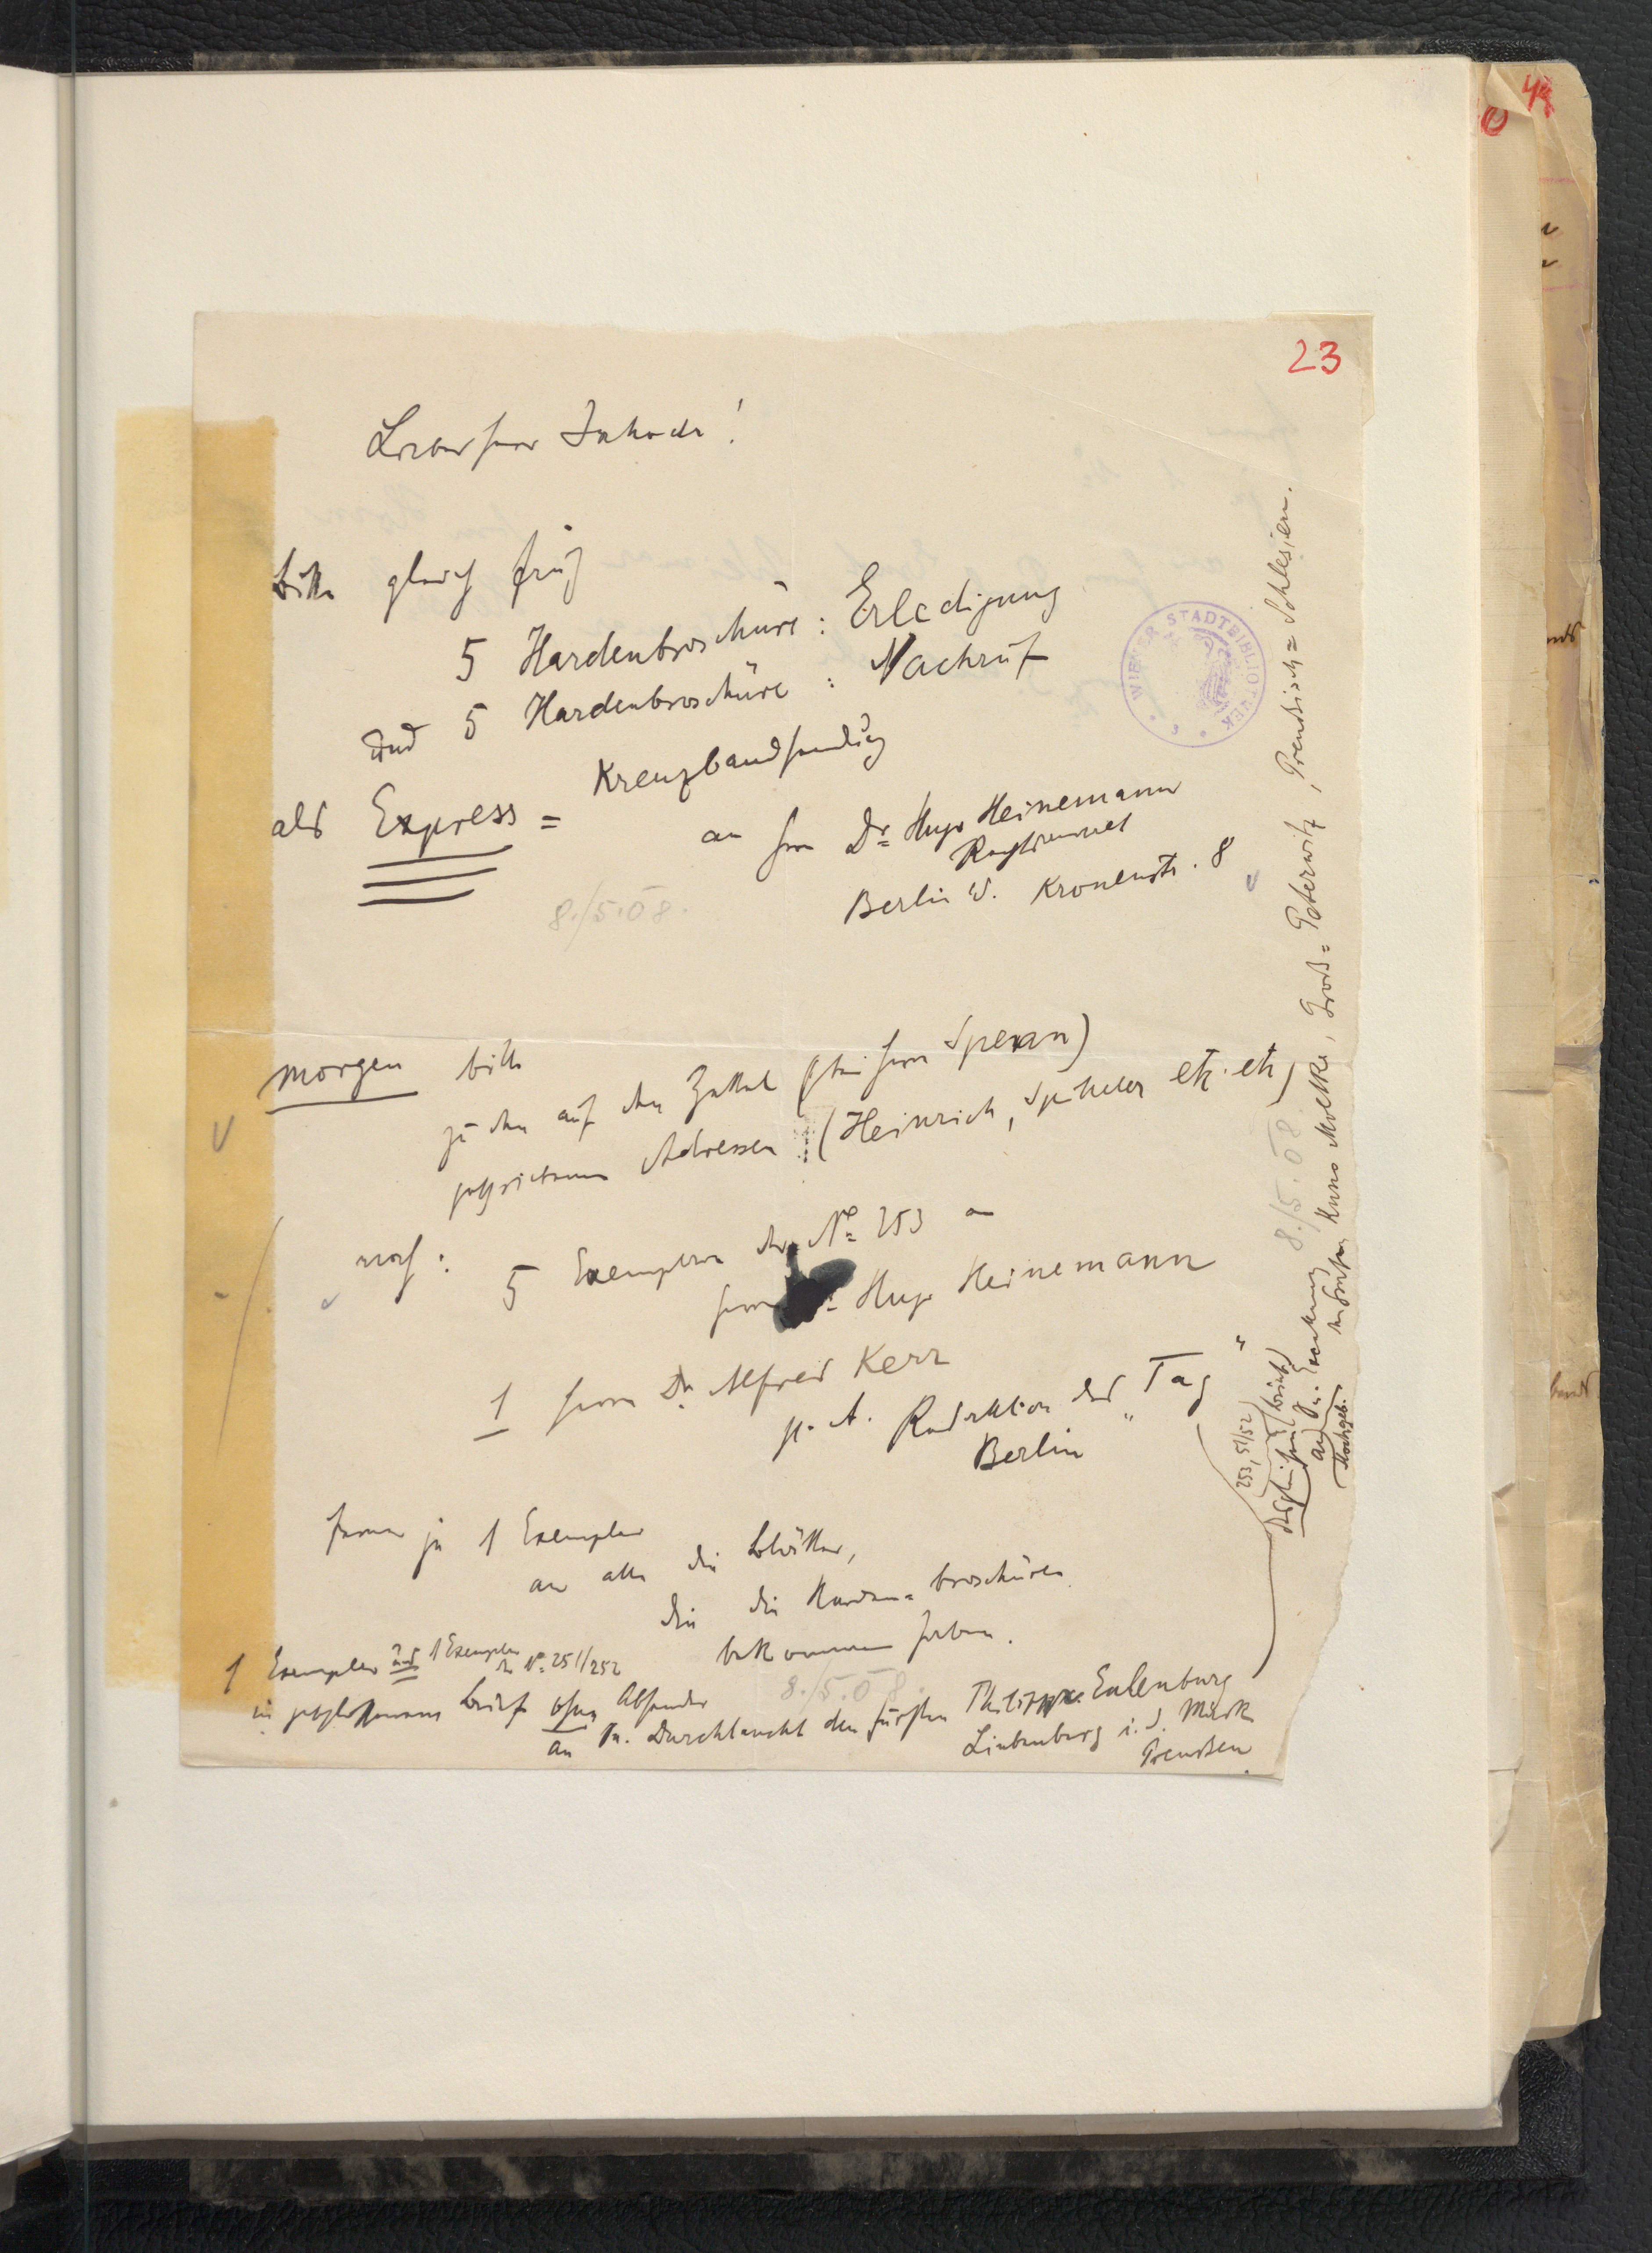 23
Lieber Herr Jahoda!
bitte gleich früh
5 Hardenbroschüre: Erledigung
und 5 Hardenbroschüre: Nachruf
als Express=
Kreuzbandsendung
an Herrn Dr Hugo Heinemann
Rechtsanwalt
Berlin W. Kronenstr. 8
8./5.08.
WIENER STADTBIBLIOTHEK
morgen bitte
zu den auf dem Zettel (bei Herrn Speran)
geschriebenen Adressen (Heinrich, Spitteler etc. etc)
noch: 5 Exemplare der No 253 an
Herrn Dr Hugo Heinemann
1 Herrn Dr. Alfred Kerr
p. A. Redaktion des „Tag“
Berlin
ferner je 1 Exemplar
an alle die Blätter,
die die Harden=broschüren
bekommen haben.
1 Exemplar und 1 Exemplar der No 251/252
in geschlossenem Brief ohne Absender
8./5.08.
an Sr. Durchlaucht den Fürsten Philipp Eulenburg
Liebenberg i. d. Mark
Preußen.
253, 251/52
desgleichen (Brief)
an Se. Exzellenz
8./5.08
den Grafen Kuno Moltke, Groß=Peterwitz, Preußisch=Schlesien.
Hochgeb.